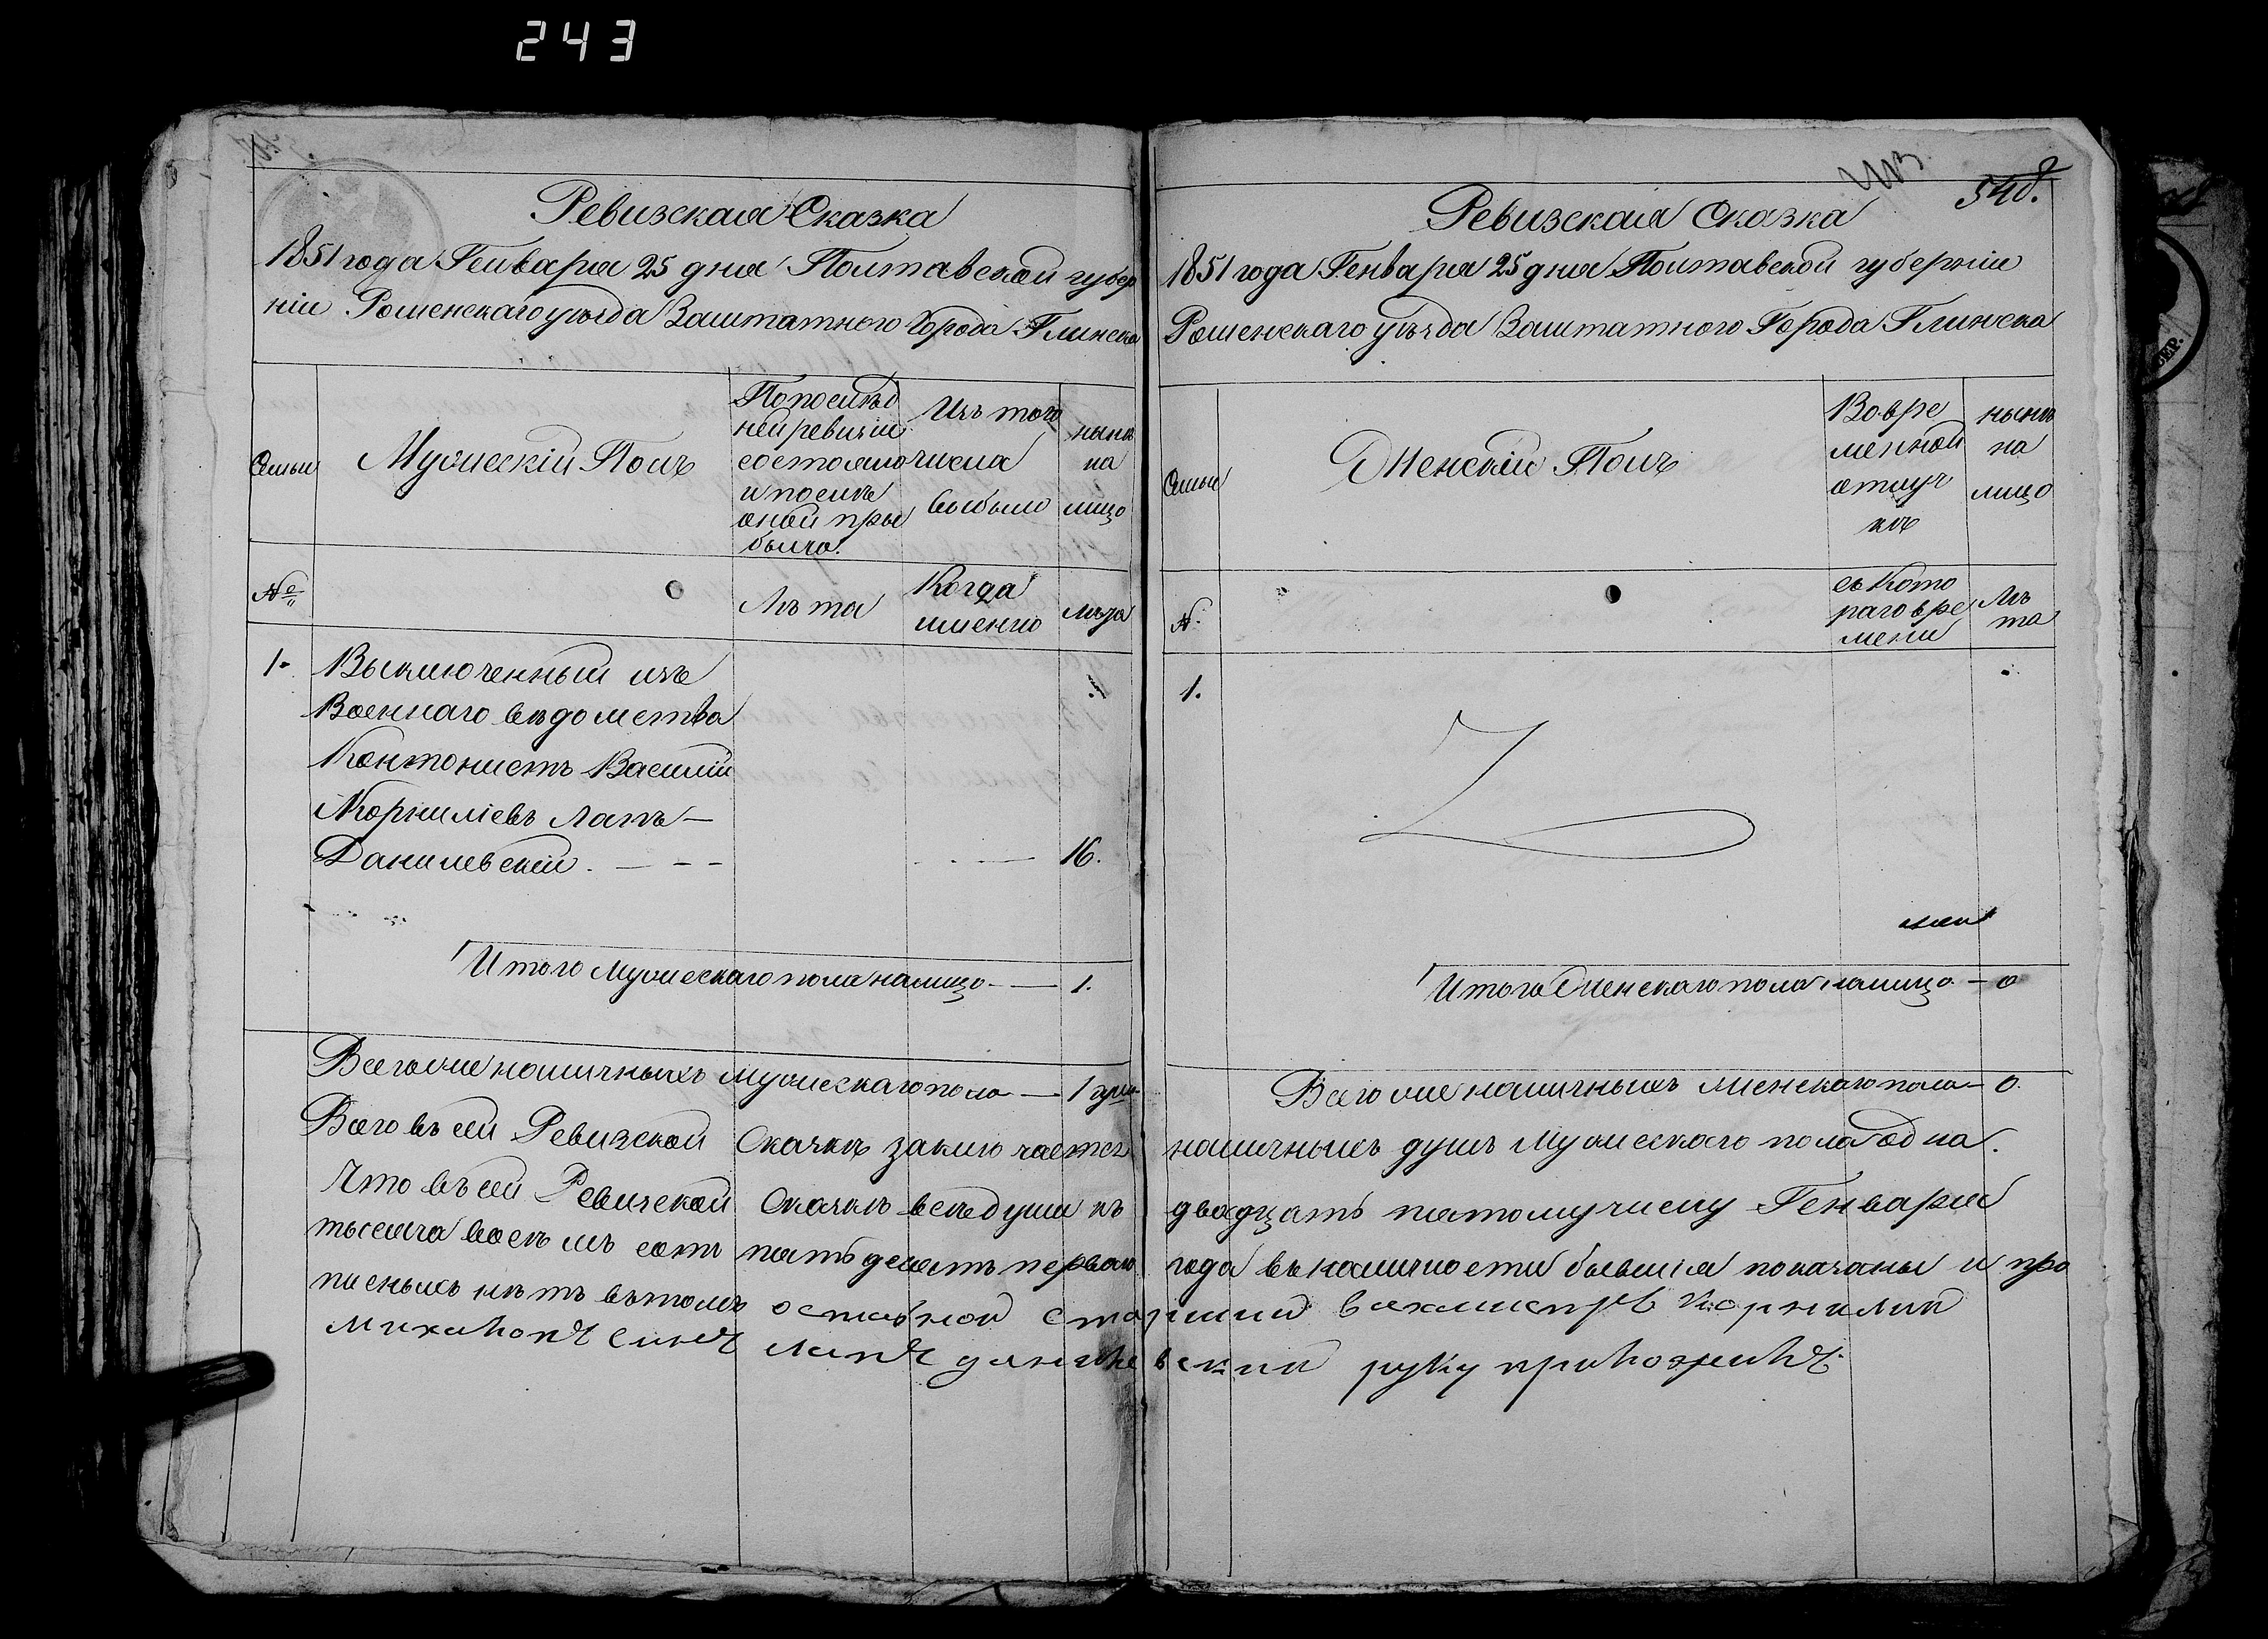 243
Ревизская Сказка
1851 года Генваря 25 дня Полтавской губер
ніи Роменскаго уѣзда Заштатного Города Глинска
Семьи
Мужескій Полъ
По послѣд
ней ревизіи
состояло
и послѣ
оной при
было.
Изъ того
числа
выбыло
нынѣ
на
лицо
№
Лѣта
Когда
именно
лѣта
1.
Выключенный изъ
Военнаго вѣдомства
Кантонистъ Василій
Корниліевъ Лапъ —
Данилевскій. — — —
16.
Итого Мужескаго пола налицо — — 1.
Всего же наличныхъ мужескаго пола — 1 душа
Всего въ сей Ревизской Сказкѣ заключается
Что въ сей Ревизской Сказкѣ все души къ
тысяча восемь сотъ пятьдесятъ перваго
писныхъ нѣтъ въ томъ
548.
Ревизская Сказка
1851 года Генваря 25 дня Полтавской губерніи
Роменскаго уѣзда Заштатного Города Глинска
Семьи
Женскій Полъ
Во вре
менной
отлуч
кѣ
нынѣ
на
лицо
№.
съ кото
раго вре
мени
Лѣ
та
1.
Итого Женскаго пола налицо — 0
Всего же наличныхъ женскаго пола — 0.
наличныхъ душъ Мужескаго пола одна.
двадцать пятому числу Генваря
года въ наличности бывшія показаны и про
оставной старшии вахмистръ Корнилии
михаиловъ синъ лапъ данилевскии руку приложилъ